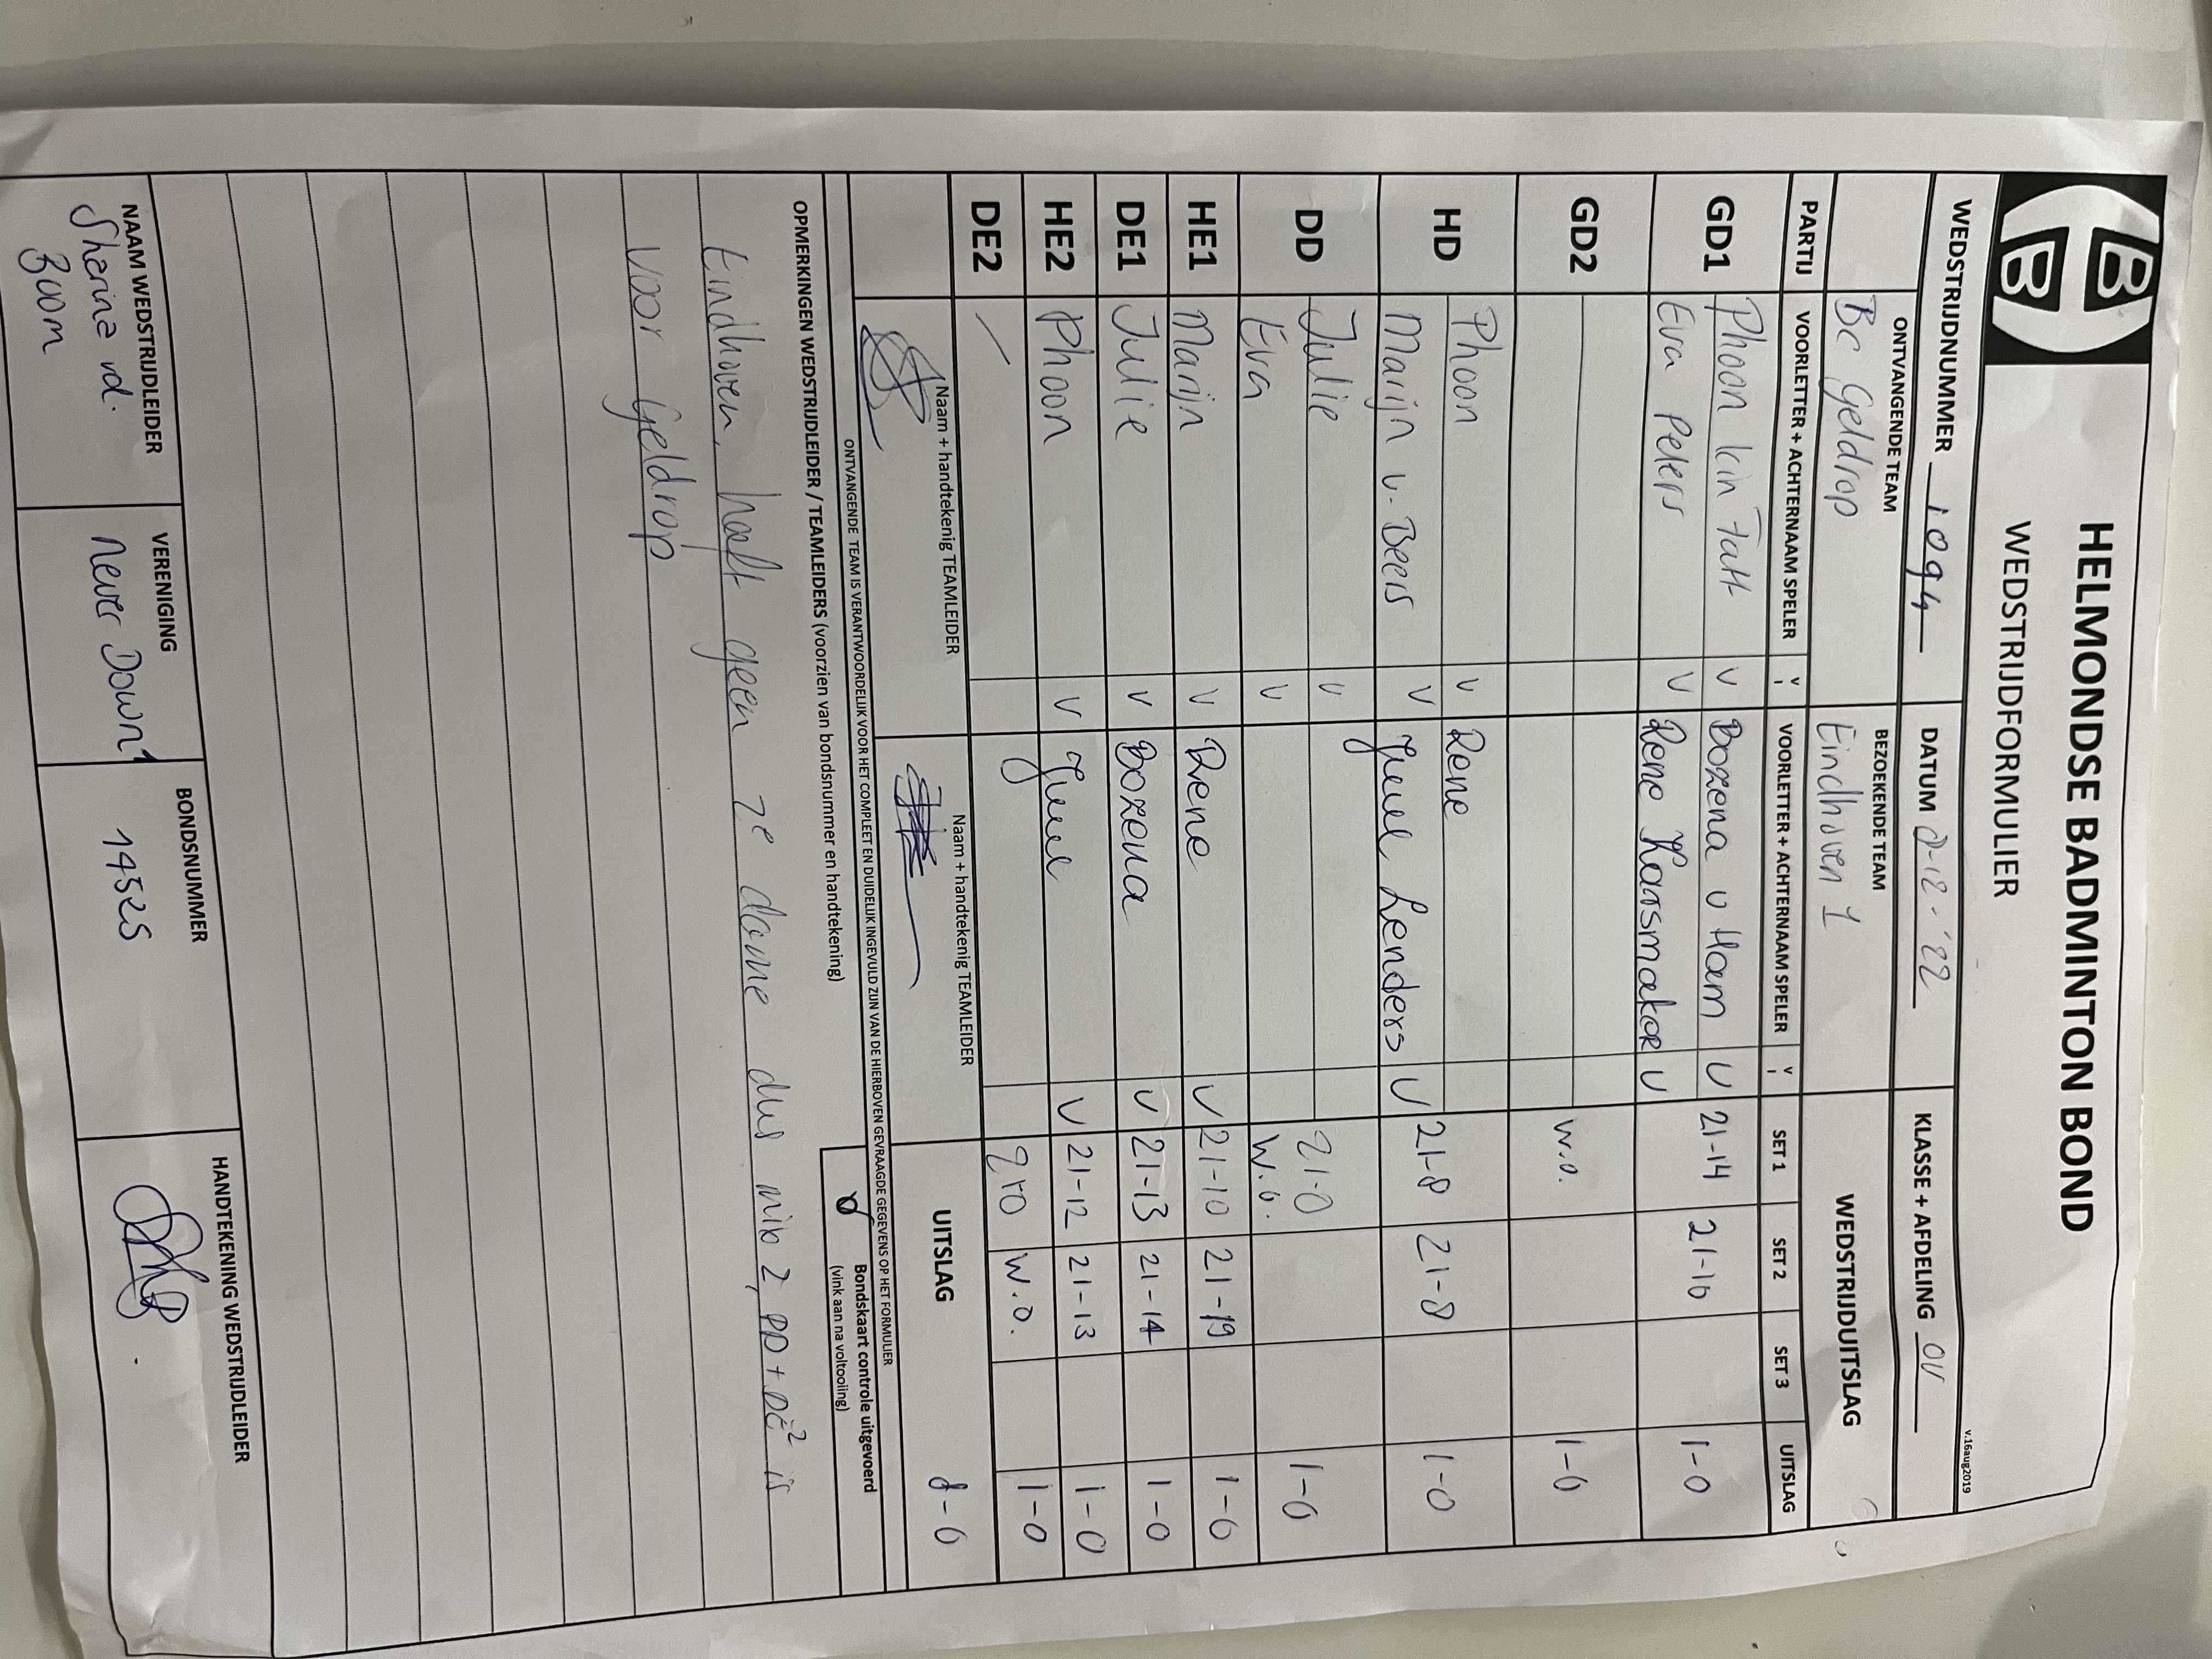 HELMONDSE BADMINTON BOND
WEDSTRIJDFORMULIER
v.16aug2019
WEDSTRIJDNUMMER 1094 DATUM 2-12-'22 KLASSE + AFDELING OV
ONTVANGENDE TEAM BEZOEKENDE TEAM WEDSTRIJDUITSLAG
Bc Geldrop Eindhoven 1
PARTIJ VOORLETTER + ACHTERNAAM SPELER V VOORLETTER + ACHTERNAAM SPELER V SET 1 SET 2 SET 3 UITSLAG
GD1 Phoon kin Fatt V Bozena v Ham V 21-14 21-16 1-0
Eva Peters V Rene Haasmaker V
GD2 W.O. 1-0
HD Phoon V Rene 21-8 21-8 1-0
Marijn v. Beers V Juul Lenders V
DD Julie V 21-0 1-0
Eva V W.O.
HE1 Marijn V Rene V 21-10 21-19 1-0
DE1 Julie V Bozena V 21-13 21-14 1-0
HE2 Phoon V Juul V 21-12 21-13 1-0
DE2 / W.O. 1-0
Naam + handtekenig TEAMLEIDER Naam + handtekenig TEAMLEIDER UITSLAG 8-0
ONTVANGENDE TEAM IS VERANTWOORDELIJK VOOR HET COMPLEET EN DUIDELIJK INGEVULD ZIJN VAN DE HIERBOVEN GEVRAAGDE GEGEVENS OP HET FORMULIER
Bondskaart controle uitgevoerd
(vink aan na voltooiing)
OPMERKINGEN WEDSTRIJDLEIDER / TEAMLEIDERS (voorzien van bondsnummer en handtekening)
Eindhoven heeft geen 2e dame dus mix 2, DD + DE2 is
voor Geldrop
NAAM WEDSTRIJDLEIDER VERENIGING BONDSNUMMER HANDTEKENING WEDSTRIJDLEIDER
Sharina vd. Never Down 1 14525
Boom